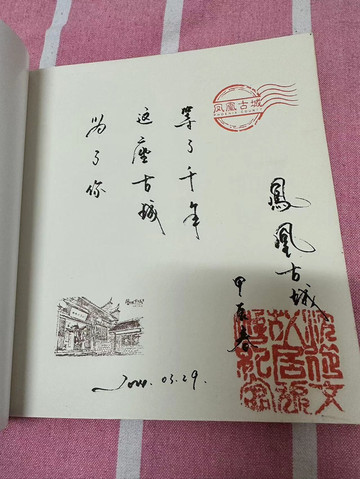 凤凰古城
为了你
这座古城
等了千年
鳳凰古城
甲辰春
2024. 03. 29.